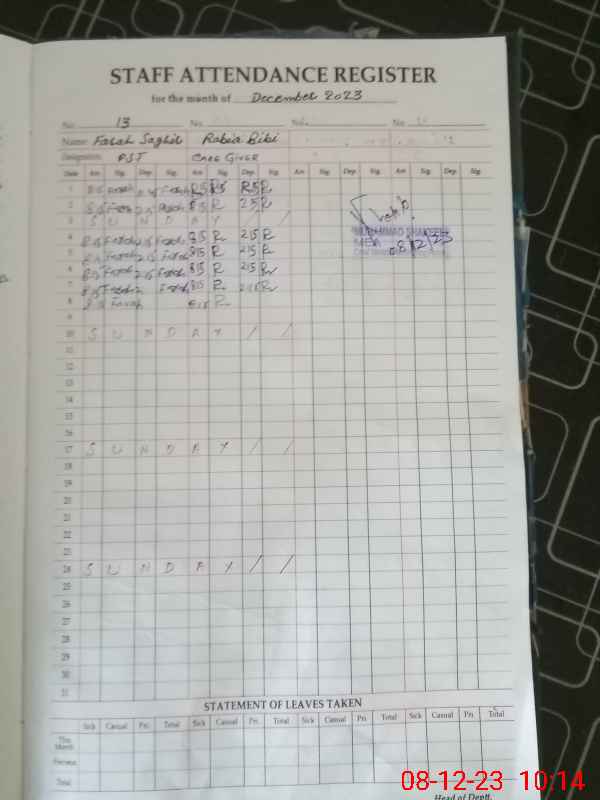 STAFF ATTENDANCE REGISTER
for the month of December 2023
No. 13 No. No. No.
Name Farah Saghir Rabia Bibi
Designation PST Care Giver
Date Arr. Sig. Dep. Sig. Arr. Sig. Dep. Sig. Arr. Sig. Dep. Sig. Arr. Sig. Dep. Sig.
1 R
2 815 R 215 R
3 S U N D A Y / /
4 815 Farah 215 Farah 815 R 215 R
5 815 Farah 215 Farah 815 R 215 R
6 815 Farah 215 Farah 815 R 215 R
7 Farah 815 R 215 R
8 Farah 815 R
9
10 S U N D A Y / /
11
12
13
14
15
16
17 S U N D A Y / /
18
19
20
21
22
23
24 S U N D A Y / /
25
26
27
28
29
30
31
MUHAMMAD
MEA
08/12/23
STATEMENT OF LEAVES TAKEN
Sick Casual Pri. Total Sick Casual Pri. Total Sick Casual Pri. Total Sick Casual Pri. Total
This Month
Previous
Total
Head of Deptt.
08-12-23 10:14